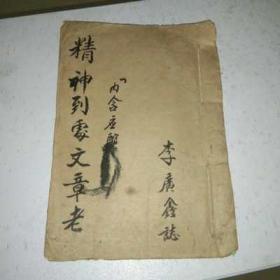 精神到處文章老
內含
李廣鑫誌